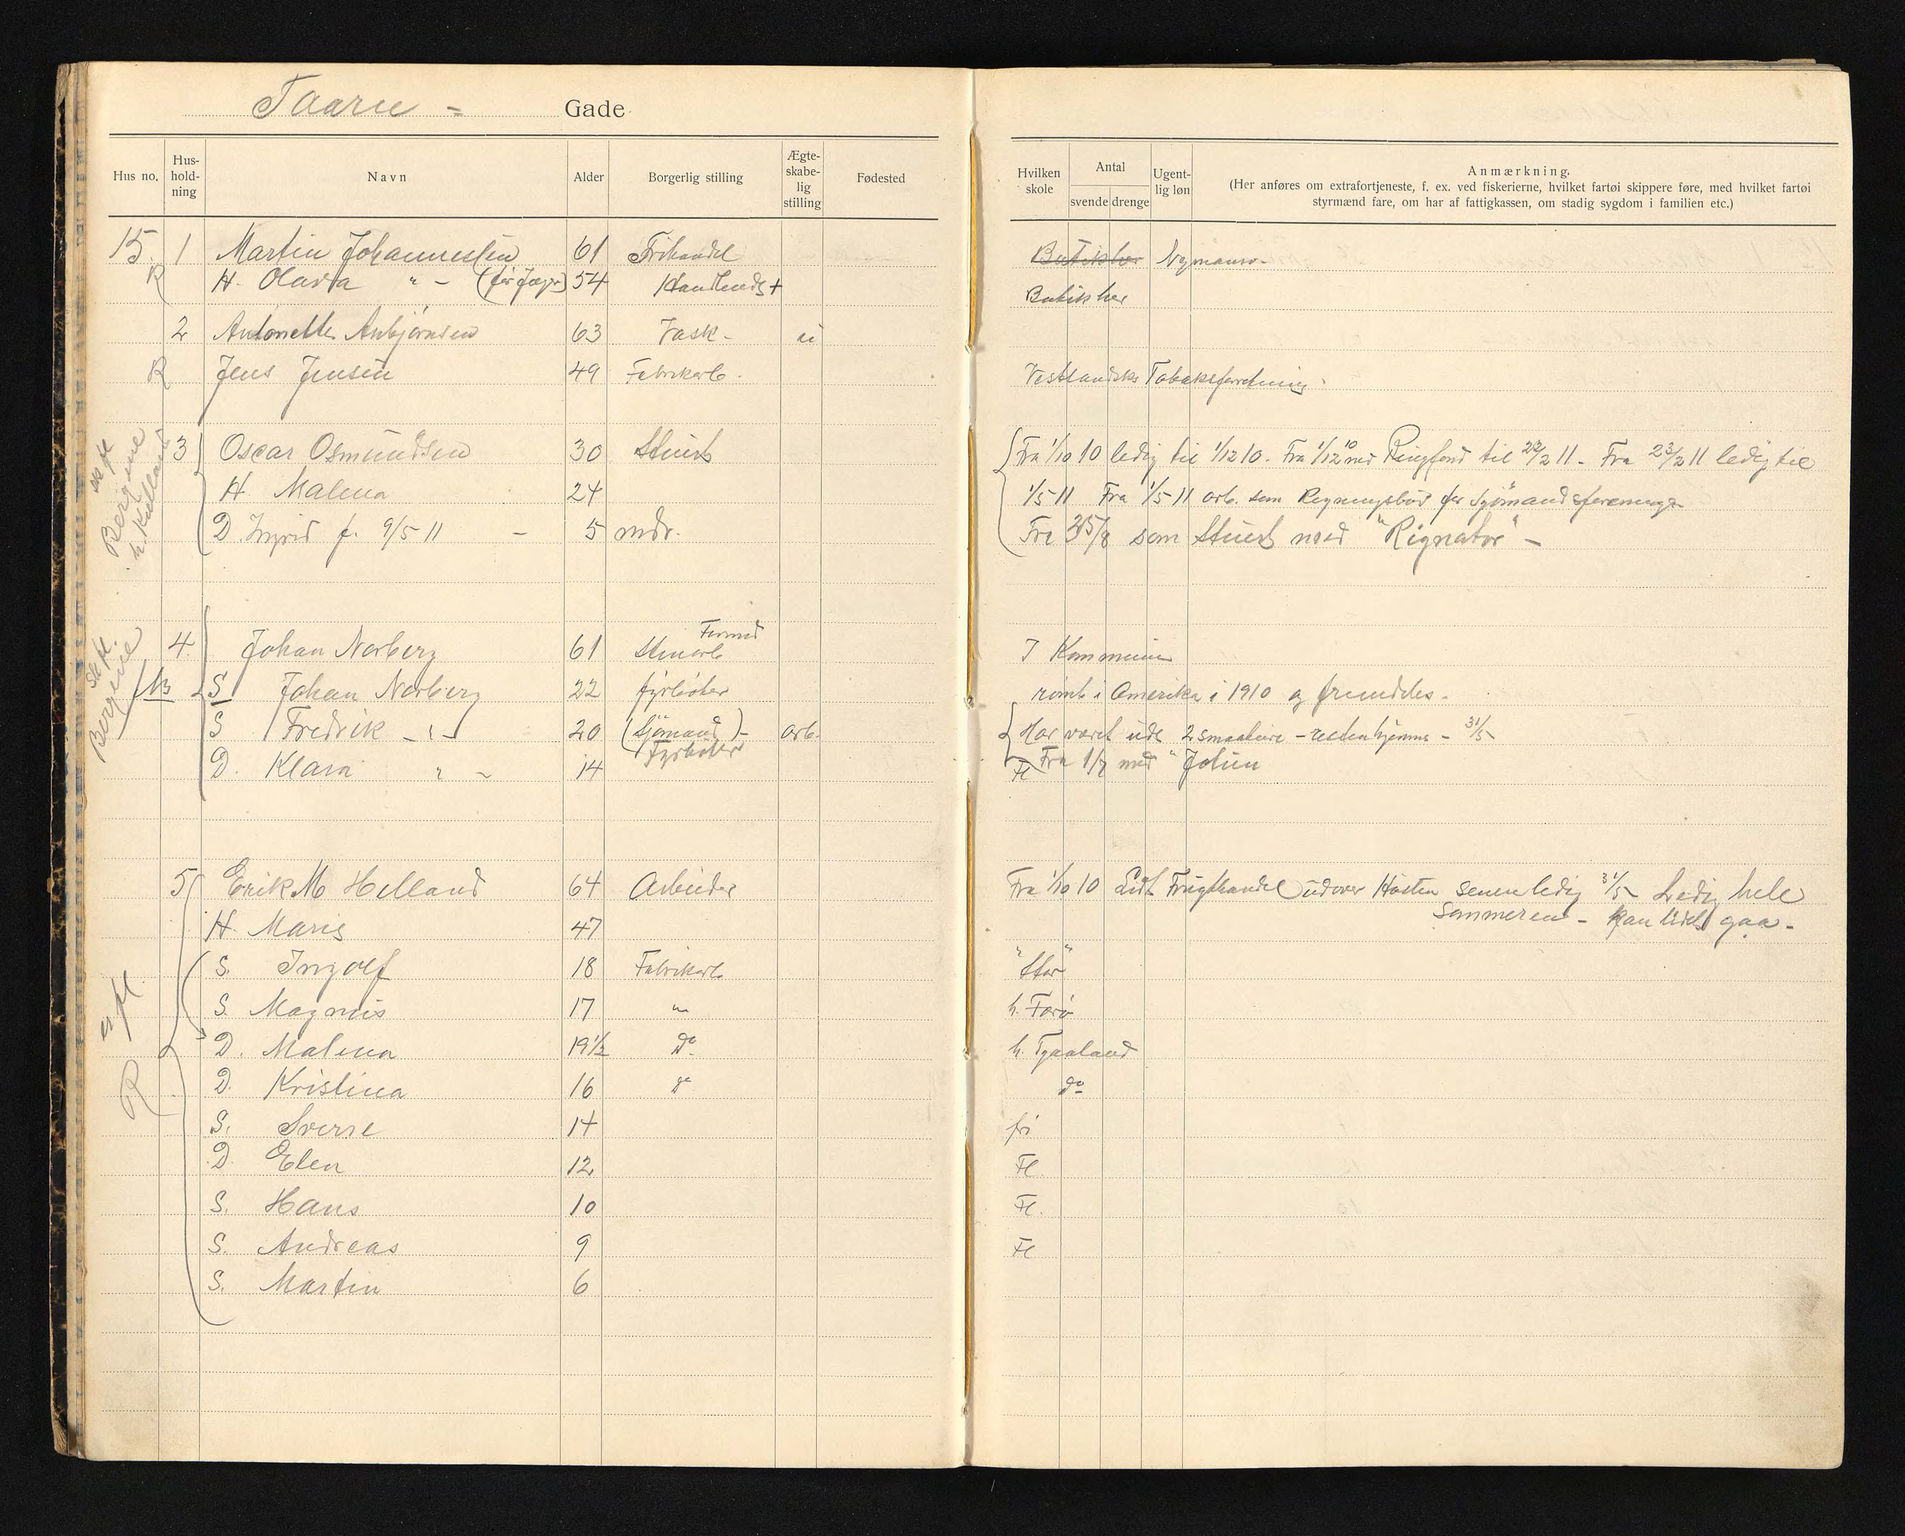 Taarn = Gade
Hus no. Hus-hold-ning Navn Alder Borgerlig stilling Ægte-skabe-lig stilling Fødested Hvilken skole Antal svende drenge Ugent-lig løn Anmærkning.
(Her anføres om extrafortjeneste, f. ex. ved fiskerierne, hvilket fartøi skippere føre, med hvilket fartøi
styrmænd fare, om har af fattigkassen, om stadig sygdom i familien etc.)
15. 1 Martin Johannessen 61 Frihandel Butikher
R H. Olava " - 54 + Butik her
2 Antonette Asbjørnsen 63 Vask -
R Jens Jensen 49 Fabrikarb. Vestlandske Tobaksforretning
3 Oscar Osmundsen 30 Stuert Fra 1/10 10 ledig til 1/12 10. Fra 1/12 10 med Ringfond til 22/2 11 - Fra 23/2 11 ledig til
H Malena 24 1/5 11 Fra 1/5 11 arb. som Regningsbud for Sjømandsforeninge
D. Ingrid f. 9/5 11 - 5 mdr. Fra 25/8 som Stuert med "Rignator" -
Bergine
h. Kielland
4. Johan Norberg 61 Stenarb Formd I Kommunen
S Johan Norberg 22 fyrbøter rømt i Amerika i 1910 og fremdeles -
S Fredrik - " - 20 (Sjømand) - Fyrbøter arb. Har været ude 2 smaature - resten hjemme - 31/5
D. Klara " - 14 Fl Fra 1/7 med "
Bergine
5 Erik M Helland 64 Arbeider Fra 1/10 10 Lidt Frugthandel udover Høsten senere ledig 31/5 Ledig hele
Sommeren - kan lidet gaa -
H Maria 47
S. Ingolf 18 Fabrikarb "Star"
S. Magnus 17 " h.
D. Malena 19 1/2 Do h. Tjaaland
D. Kristina 16 do do
R
S. Sverre 14 fri
D. Elen 12 Fl.
S. Hans 10 Fl.
S. Andreas 9 Fl
S. Martin 6